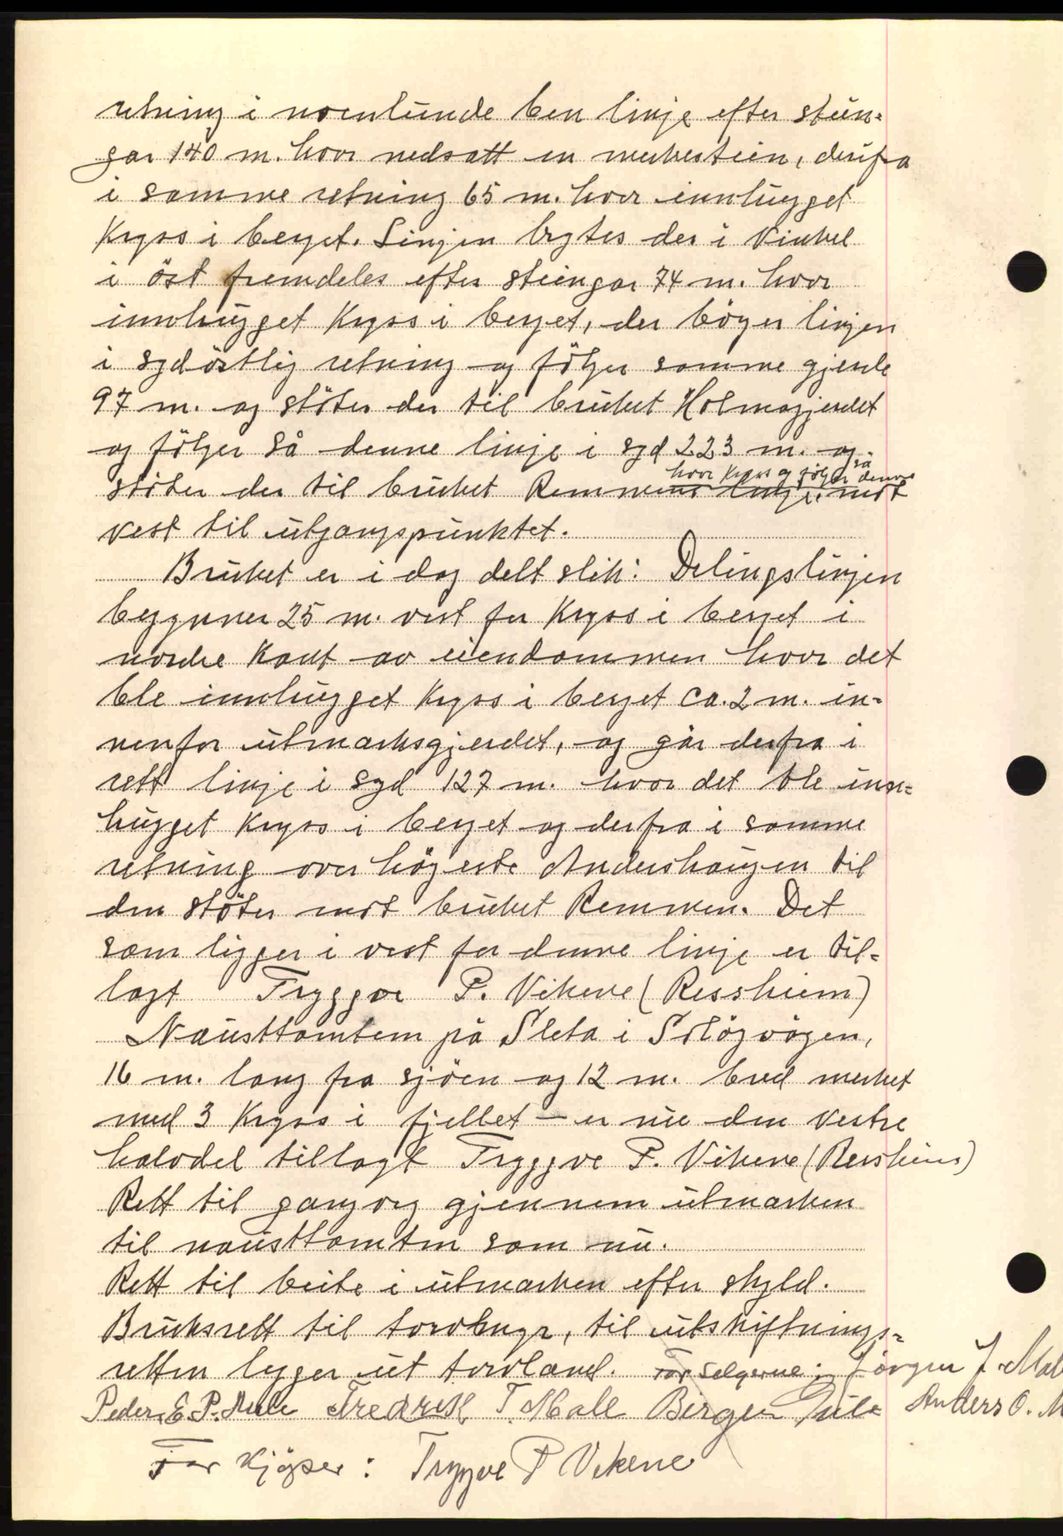 retning i noenlunde ben linje efter stein-
gar 140 m. hvor nedsatt en merkestein, derifra
i samme retning 65 m. hvor innhugget
Kryss i berget. Linjen brytes der i Vinkel
i öst fremdeles efter steingar 74 m. hvor
innhugget Kryss i berget, der böyer linjen
i sydöstlig retning og fölger samme gjerde
97 m. og stöter der til bruket Holmagjerdet
og fölger så denne linje i syd 223 m. og
hvor Kryss og fölger så denne
stöter der til bruket Remmens linje mot
vest til utgangspunktet.
Bruket er i dag delt slik: Delingslinjen
begynner 25 m. vest for Kryss i berget i
nordre Kant av eiendommen hvor det
ble innhugget Kryss i berget ca. 2 m. in-
nenfor utmarksgjerdet, og går derfra i
rett linje i syd 127 m. hvor det ble inn-
hugget Kryss i berget og derfra i samme
retning over högeste Andershaugen til
den stöter mot bruket Remmen. Det
som ligger i vest for denne linje er til-
lagt Tryggve P. Vikene (Ressheim)
Nausttomten på Sleta i
16 m. lang fra sjöen og 12 m. bred merket
med 3 Kryss i fjellet - er nu den vestre
halvdel tillagt Tryggve P. Vikene (Ressheim)
Rett til gangveg gjennem utmarken
til nausttomten som nu.
Rett til beite i utmarken efter skyld.
Bruksrett til torvbuyr, til utskiftnings-
retten legger ut torvland. For Selgerne: Jörgen J.
Peder E. P. Fredrik T. Male Berger Anders O.
For Kjöper: Trygve P Vikene